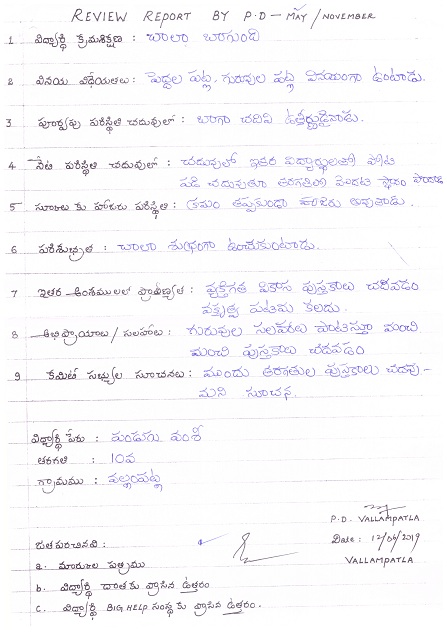 REVIEW REPORT BY P.D - MAY/NOVEMBER
1 విద్యార్థి క్రమశిక్షణ : చాలా బాగుంది
2 వినయ విధేయతలు : పెద్దల పట్ల, గురువుల పట్ల వినయంగా ఉంటాడు.
3 పూర్వపు పరిస్థితి చదువులో : బాగా చదివి ఉత్తీర్ణుడైనాడు.
4 నేటి పరిస్థితి చదువులో : చదువులో ఇతర విద్యార్థులతో పోటి
పడి చదువుతూ తరగతిలో మొదటి స్థానం
5 స్కూలు కు హాజరు పరిస్థితి : క్రమం తప్పకుండా హాజరు అవుతాడు.
6 పరిశుభ్రత : చాలా శుభ్రంగా ఉంచుకుంటాడు.
7 ఇతర అంశములలో ప్రావీణ్యత : వ్యక్తిగత వికాస పుస్తకాలు చదవడం
వక్తృత్వ పటిమ కలదు.
8 అభిప్రాయాలు / సలహాలు : గురువుల సలహాలు పాటిస్తూ మంచి
మంచి పుస్తకాలు చదవడం
9 కమిటీ సభ్యుల సూచనలు : ముందు తరగతుల పుస్తకాలు చదవు-
మని సూచన.
విద్యార్థి పేరు : పండుగు వంశీ
తరగతి : 10వ
గ్రామము : వల్లంపట్ల
P.D. VALLAMPATLA
Date : 12/06/2019
VALLAMPATLA
జతపరచినవి :
a. మార్కుల పత్రము
b. విద్యార్థి దాతకు వ్రాసిన ఉత్తరం
c. విద్యార్థి BIG HELP సంస్థ కు వ్రాసిన ఉత్తరం.